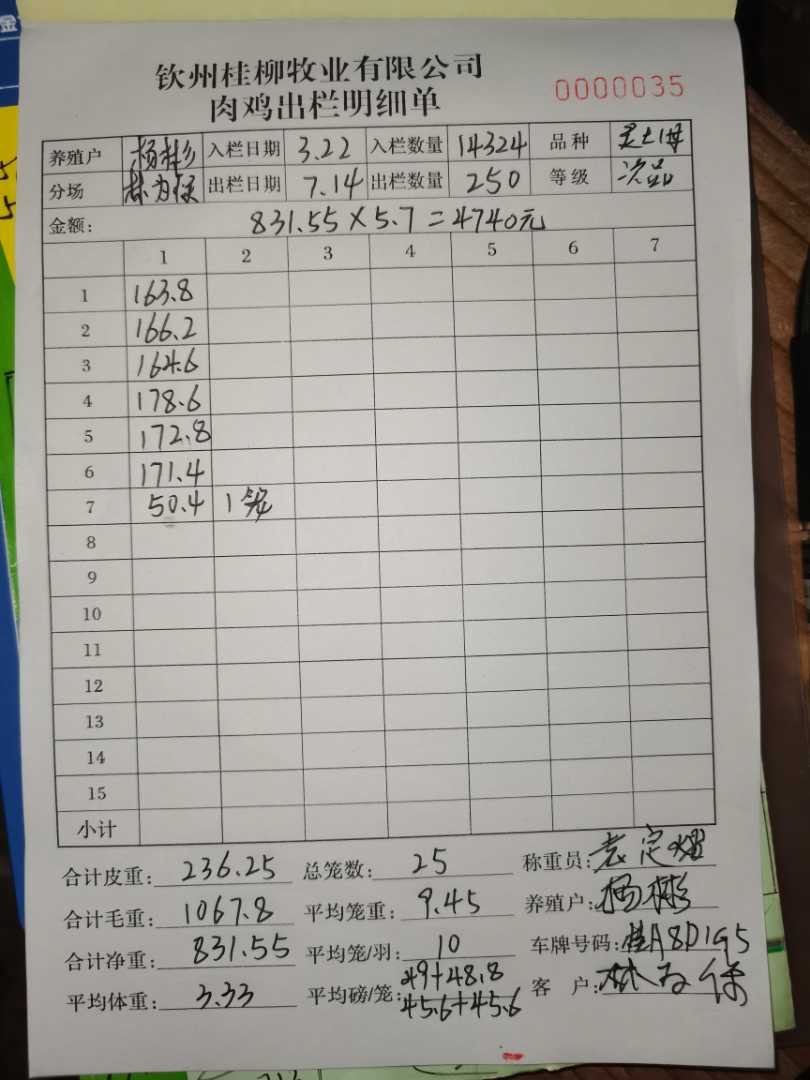 钦州桂柳牧业有限公司
肉鸡出栏明细单
0000035
养殖户 杨彬 入栏日期 3.22 入栏数量 14324 品种 灵土母
分场 林为保 出栏日期 7.14 出栏数量 250 等级 次品
金额: 831.55×5.7=4740元
1 2 3 4 5 6 7
1 163.8
2 166.2
3 164.6
4 178.6
5 172.8
6 171.4
7 50.4 1笼
8
9
10
11
12
13
14
15
小计
合计皮重: 236.25 总笼数: 25 称重员: 袁定
合计毛重: 1067.8 平均笼重: 9.45 养殖户: 杨彬
合计净重: 831.55 平均笼/羽: 10 车牌号码: 桂A8D195
平均体重: 3.33 平均磅/笼: 49+48.8 客 户: 林为保
45.6+45.6